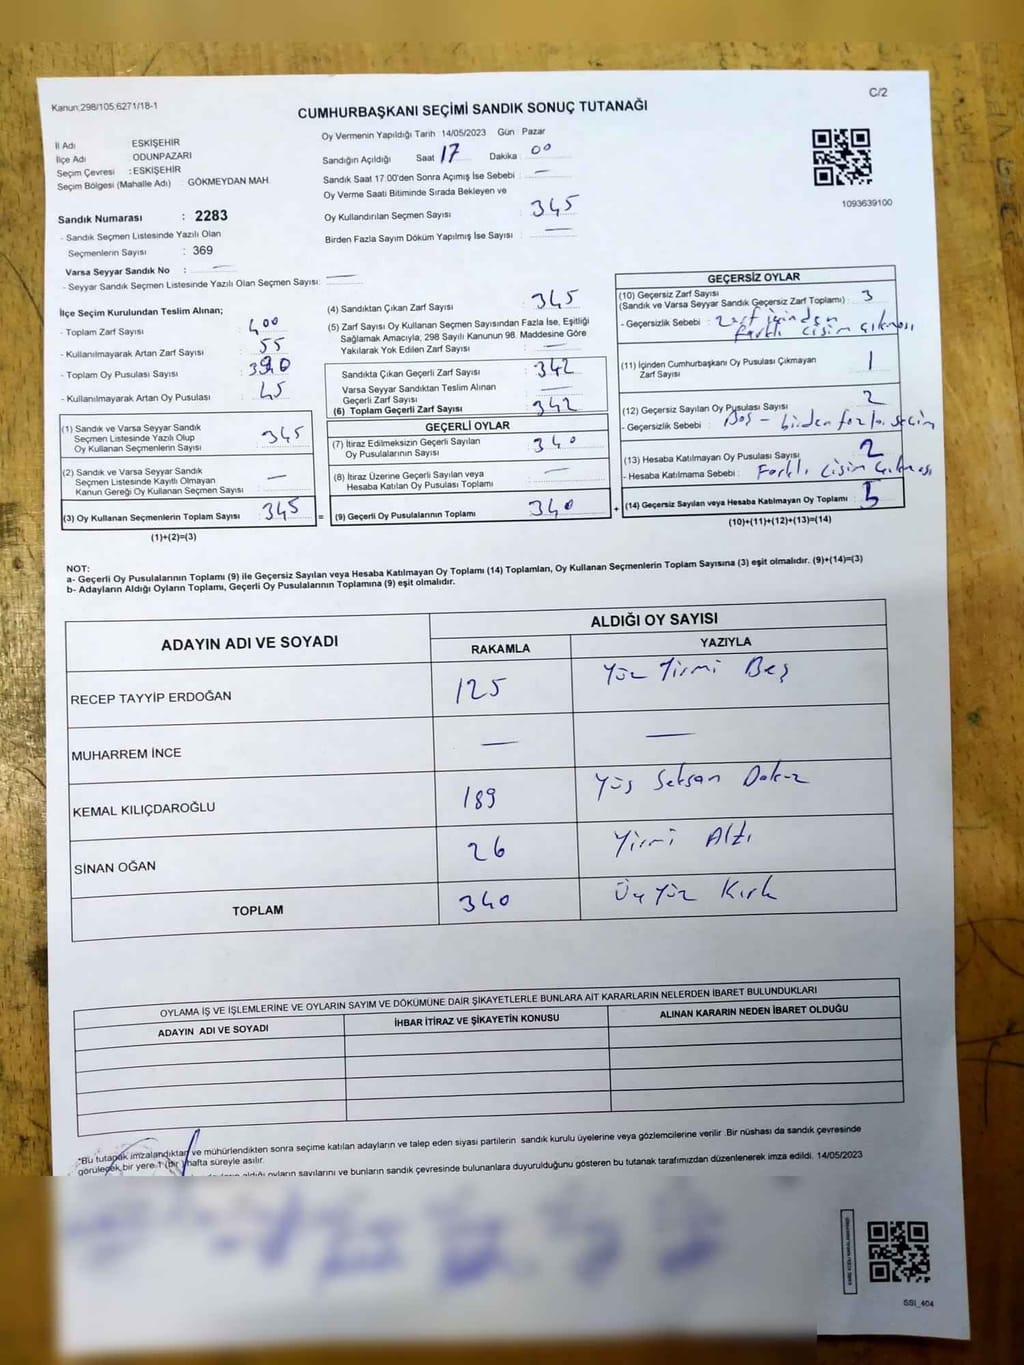 Kanun:298/105;6271/18-1
C/2
CUMHURBAŞKANI SEÇİMİ SANDIK SONUÇ TUTANAĞI
İl Adı ESKİŞEHİR
İlçe Adı ODUNPAZARI
Seçim Çevresi : ESKİŞEHİR
Seçim Bölgesi (Mahalle Adı) GÖKMEYDAN MAH.
Sandık Numarası : 2283
- Sandık Seçmen Listesinde Yazılı Olan
Seçmenlerin Sayısı : 369
Varsa Seyyar Sandık No : —
- Seyyar Sandık Seçmen Listesinde Yazılı Olan Seçmen Sayısı: —
Oy Vermenin Yapıldığı Tarih 14/05/2023 Gün : Pazar
Sandığın Açıldığı Saat 17 Dakika : 00
Sandık Saat 17:00'den Sonra Açımış İse Sebebi : —
Oy Verme Saati Bitiminde Sırada Bekleyen ve
Oy Kullandırılan Seçmen Sayısı : 345
Birden Fazla Sayım Döküm Yapılmış İse Sayısı : —
1093639100
İlçe Seçim Kurulundan Teslim Alınan;
- Toplam Zarf Sayısı : 400
- Kullanılmayarak Artan Zarf Sayısı : 55
- Toplam Oy Pusulası Sayısı : 390
- Kullanılmayarak Artan Oy Pusulası : 45
(1) Sandık ve Varsa Seyyar Sandık
Seçmen Listesinde Yazılı Olup
Oy Kullanan Seçmenlerin Sayısı : 345
(2) Sandık ve Varsa Seyyar Sandık
Seçmen Listesinde Kayıtlı Olmayan
Kanun Gereği Oy Kullanan Seçmen Sayısı : —
(3) Oy Kullanan Seçmenlerin Toplam Sayısı : 345
(1)+(2)=(3)
(4) Sandıktan Çıkan Zarf Sayısı : 345
(5) Zarf Sayısı Oy Kullanan Seçmen Sayısından Fazla İse, Eşitliği
Sağlamak Amacıyla, 298 Sayılı Kanunun 98. Maddesine Göre
Yakılarak Yok Edilen Zarf Sayısı : —
Sandıkta Çıkan Geçerli Zarf Sayısı : 342
Varsa Seyyar Sandıktan Teslim Alınan
Geçerli Zarf Sayısı : —
(6) Toplam Geçerli Zarf Sayısı : 342
GEÇERLİ OYLAR
(7) İtiraz Edilmeksizin Geçerli Sayılan
Oy Pusulalarının Sayısı : 340
(8) İtiraz Üzerine Geçerli Sayılan veya
Hesaba Katılan Oy Pusulası Toplamı : —
= (9) Geçerli Oy Pusulalarının Toplamı : 340
GEÇERSİZ OYLAR
(10) Geçersiz Zarf Sayısı
(Sandık ve Varsa Seyyar Sandık Geçersiz Zarf Toplamı) : 3
- Geçersizlik Sebebi : Zarf içinden
farklı cisim çıkması
(11) İçinden Cumhurbaşkanı Oy Pusulası Çıkmayan
Zarf Sayısı : 1
(12) Geçersiz Sayılan Oy Pusulası Sayısı : 2
- Geçersizlik Sebebi : Boş - birden fazla seçim
(13) Hesaba Katılmayan Oy Pusulası Sayısı : 2
- Hesaba Katılmama Sebebi : Farklı cisim çıkması
+ (14) Geçersiz Sayılan veya Hesaba Katılmayan Oy Toplamı : 5
(10)+(11)+(12)+(13)=(14)
NOT:
a- Geçerli Oy Pusulalarının Toplamı (9) ile Geçersiz Sayılan veya Hesaba Katılmayan Oy Toplamı (14) Toplamları, Oy Kullanan Seçmenlerin Toplam Sayısına (3) eşit olmalıdır. (9)+(14)=(3)
b- Adayların Aldığı Oyların Toplamı, Geçerli Oy Pusulalarının Toplamına (9) eşit olmalıdır.
ADAYIN ADI VE SOYADI
ALDIĞI OY SAYISI
RAKAMLA YAZIYLA
RECEP TAYYİP ERDOĞAN 125 Yüz Yirmi Beş
MUHARREM İNCE — —
KEMAL KILIÇDAROĞLU 189 Yüz Seksan Dokuz
SİNAN OĞAN 26 Yirmi Altı
TOPLAM 340 Üç Yüz Kırk
OYLAMA İŞ VE İŞLEMLERİNE VE OYLARIN SAYIM VE DÖKÜMÜNE DAİR ŞİKAYETLERLE BUNLARA AİT KARARLARIN NELERDEN İBARET BULUNDUKLARI
ADAYIN ADI VE SOYADI İHBAR İTİRAZ VE ŞİKAYETİN KONUSU ALINAN KARARIN NEDEN İBARET OLDUĞU
*Bu tutanak imzalandıktan ve mühürlendikten sonra seçime katılan adayların ve talep eden siyasi partilerin sandık kurulu üyelerine veya gözlemcilerine verilir. Bir nüshası da sandık çevresinde
görülecek bir yere 1 (bir) hafta süreyle asılır.
aldığı oyların sayılarını ve bunların sandık çevresinde bulunanlara duyurulduğunu gösteren bu tutanak tarafımızdan düzenlenerek imza edildi. 14/05/2023
SSI_404